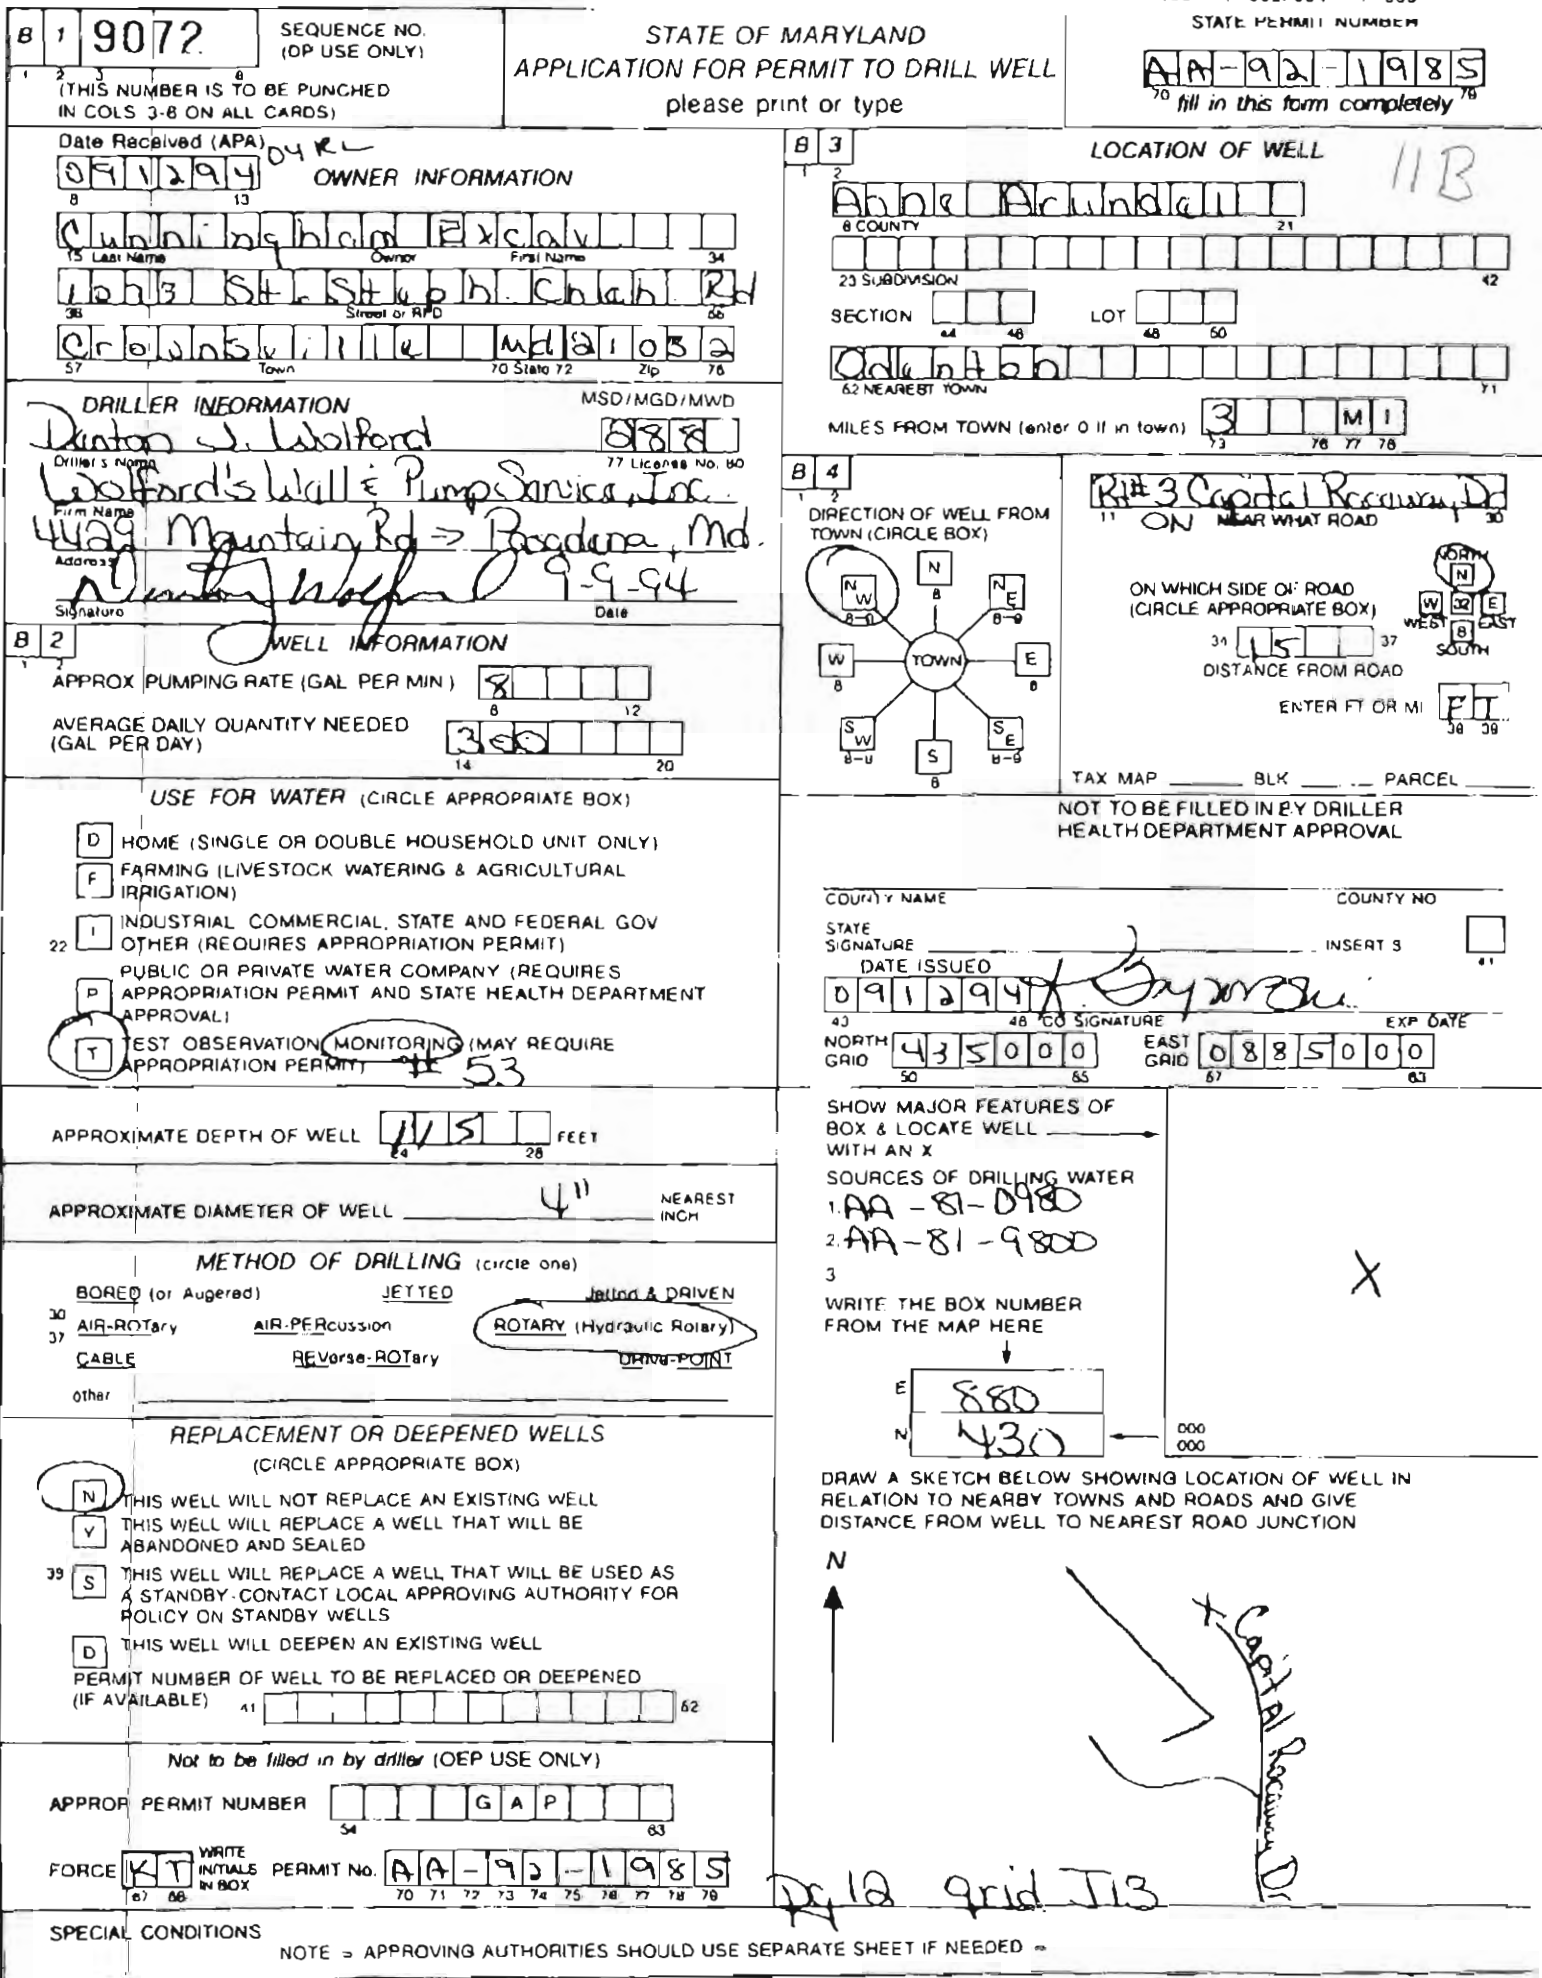 B 1 9072 SEQUENCE NO. (DP USE ONLY)
1 2 3 8
(THIS NUMBER IS TO BE PUNCHED
IN COLS 3-6 ON ALL CARDS)
STATE OF MARYLAND
APPLICATION FOR PERMIT TO DRILL WELL
please print or type
STATE PERMIT NUMBER
AA-92-1985
70 fill in this form completely 79
Date Received (APA) 04 RL
091294 OWNER INFORMATION
8 13
Cunningham Excav
15 Last Name Owner First Name 34
1273 St. Steph. Chch. Rd
36 Street or RFD 55
Crownsville Md 21032
57 Town 70 State 72 Zip 76
DRILLER INFORMATION MSD/MGD/MWD
Denton J. Wolford 088
Driller's Name 77 License No. 80
Wolford's Well & Pump Service, Inc.
Firm Name
4429 Mountain Rd -> Pasadena, Md.
Address
Denton J Wolford 9-9-94
Signature Date
B 2 WELL INFORMATION
1 2
APPROX PUMPING RATE (GAL PER MIN) 8
8 12
AVERAGE DAILY QUANTITY NEEDED
(GAL PER DAY) 300
14 20
USE FOR WATER (CIRCLE APPROPRIATE BOX)
D HOME (SINGLE OR DOUBLE HOUSEHOLD UNIT ONLY)
F FARMING (LIVESTOCK WATERING & AGRICULTURAL
IRRIGATION)
I INDUSTRIAL COMMERCIAL, STATE AND FEDERAL GOV
22 OTHER (REQUIRES APPROPRIATION PERMIT)
PUBLIC OR PRIVATE WATER COMPANY (REQUIRES
P APPROPRIATION PERMIT AND STATE HEALTH DEPARTMENT
APPROVAL)
T TEST OBSERVATION MONITORING (MAY REQUIRE
APPROPRIATION PERMIT) # 53
APPROXIMATE DEPTH OF WELL 115 FEET
24 28
APPROXIMATE DIAMETER OF WELL 4" NEAREST INCH
METHOD OF DRILLING (circle one)
BORED (or Augered) JETTED Jetted & DRIVEN
30 AIR-ROTary AIR-PERcussion ROTARY (Hydraulic Rotary)
37 CABLE REVerse-ROTary DRIVE-POINT
other
REPLACEMENT OR DEEPENED WELLS
(CIRCLE APPROPRIATE BOX)
N THIS WELL WILL NOT REPLACE AN EXISTING WELL
Y THIS WELL WILL REPLACE A WELL THAT WILL BE
ABANDONED AND SEALED
39 S THIS WELL WILL REPLACE A WELL THAT WILL BE USED AS
A STANDBY-CONTACT LOCAL APPROVING AUTHORITY FOR
POLICY ON STANDBY WELLS
D THIS WELL WILL DEEPEN AN EXISTING WELL
PERMIT NUMBER OF WELL TO BE REPLACED OR DEEPENED
(IF AVAILABLE) 41 52
Not to be filled in by driller (OEP USE ONLY)
APPROP PERMIT NUMBER G A P
54 63
FORCE KT WRITE INITIALS IN BOX PERMIT No. AA-92-1985
67 68 70 71 72 73 74 75 76 77 78 79
SPECIAL CONDITIONS
NOTE = APPROVING AUTHORITIES SHOULD USE SEPARATE SHEET IF NEEDED =
B 3 LOCATION OF WELL 11B
1 2
Anne Arundel
8 COUNTY 21
23 SUBDIVISION 42
SECTION LOT
44 46 48 50
Odenton
52 NEAREST TOWN 71
MILES FROM TOWN (enter 0 if in town) 3 M I
73 76 77 78
B 4
1 2
DIRECTION OF WELL FROM
TOWN (CIRCLE BOX)
NW N NE
W TOWN E
SW S SE
Rt #3 Capital Raceway Dd
11 ON NEAR WHAT ROAD 30
ON WHICH SIDE OF ROAD
(CIRCLE APPROPRIATE BOX)
NORTH
N
W 32 E
WEST EAST
S
SOUTH
34 15 37
DISTANCE FROM ROAD
ENTER FT OR MI FT
38 39
TAX MAP BLK PARCEL
NOT TO BE FILLED IN BY DRILLER
HEALTH DEPARTMENT APPROVAL
COUNTY NAME COUNTY NO
STATE
SIGNATURE INSERT S
41
DATE ISSUED
091294
43 48 CO SIGNATURE EXP DATE
NORTH GRID 435000 EAST GRID 0885000
50 55 57 63
SHOW MAJOR FEATURES OF
BOX & LOCATE WELL
WITH AN X
SOURCES OF DRILLING WATER
1. AA-81-0980
2. AA-81-9800
3
X
WRITE THE BOX NUMBER
FROM THE MAP HERE
E 880
N 430
000
000
DRAW A SKETCH BELOW SHOWING LOCATION OF WELL IN
RELATION TO NEARBY TOWNS AND ROADS AND GIVE
DISTANCE FROM WELL TO NEAREST ROAD JUNCTION
N
X Capital Raceway Dr
Pg 12 grid J13